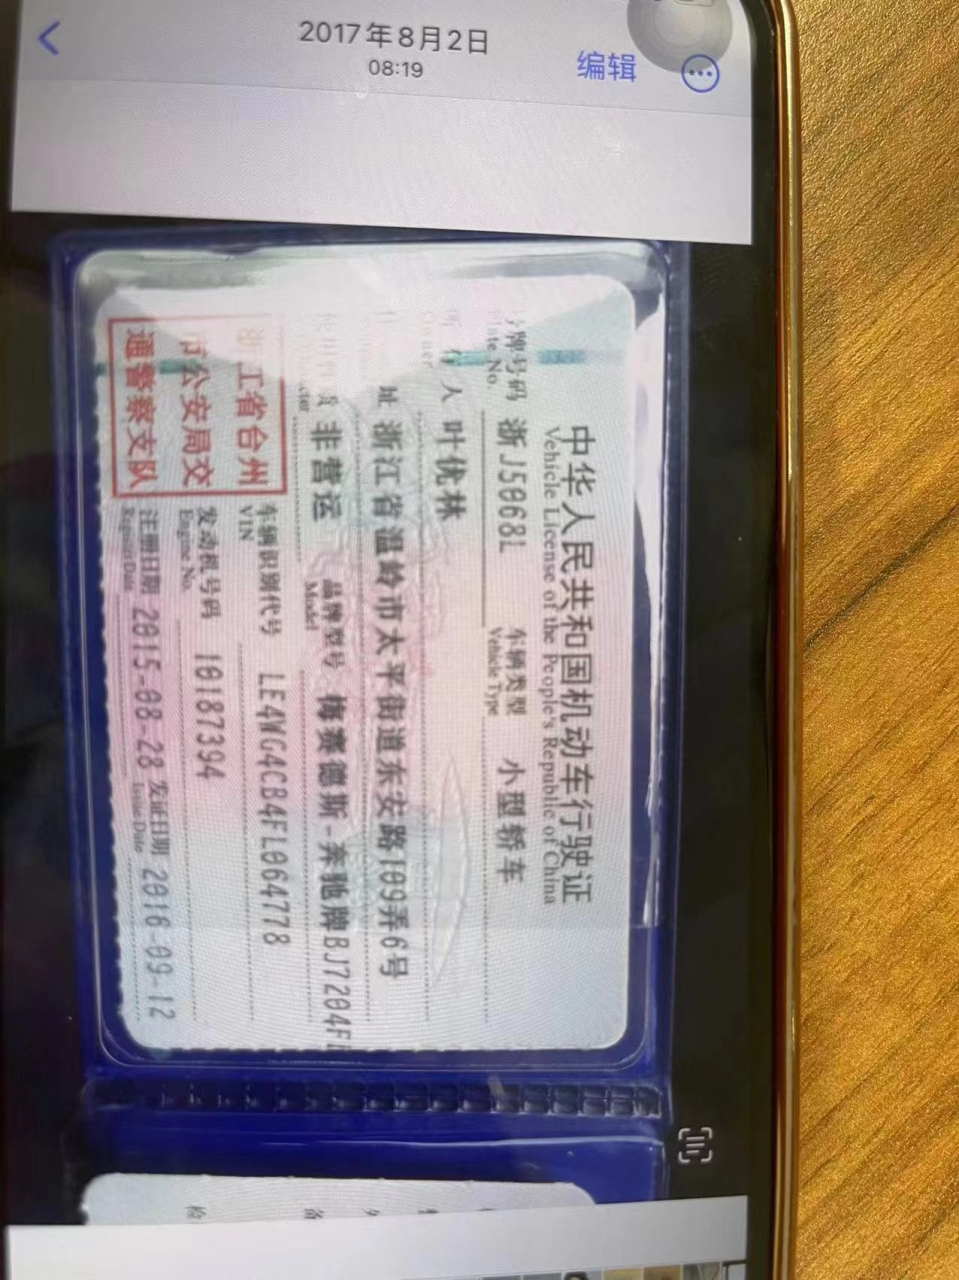 2017年8月2日
08:19
编辑
中华人民共和国机动车行驶证
Vehicle License of the People's Republic of China
号牌号码 浙J5068L 车辆类型 小型轿车
Plate No. Vehicle Type
所有人 叶优林
Owner
住 址 浙江省温岭市太平街道东安路109弄6号
使用性质 非营运 品牌型号 梅赛德斯-奔驰牌BJ7204F
Model
浙江省台州
市公安局交
通警察支队
车辆识别代号 LE4WG4CB4FL064778
VIN
发动机号码 10187394
Engine No.
注册日期 2015-08-28 发证日期 2016-09-12
Register Date Issue Date
检
备